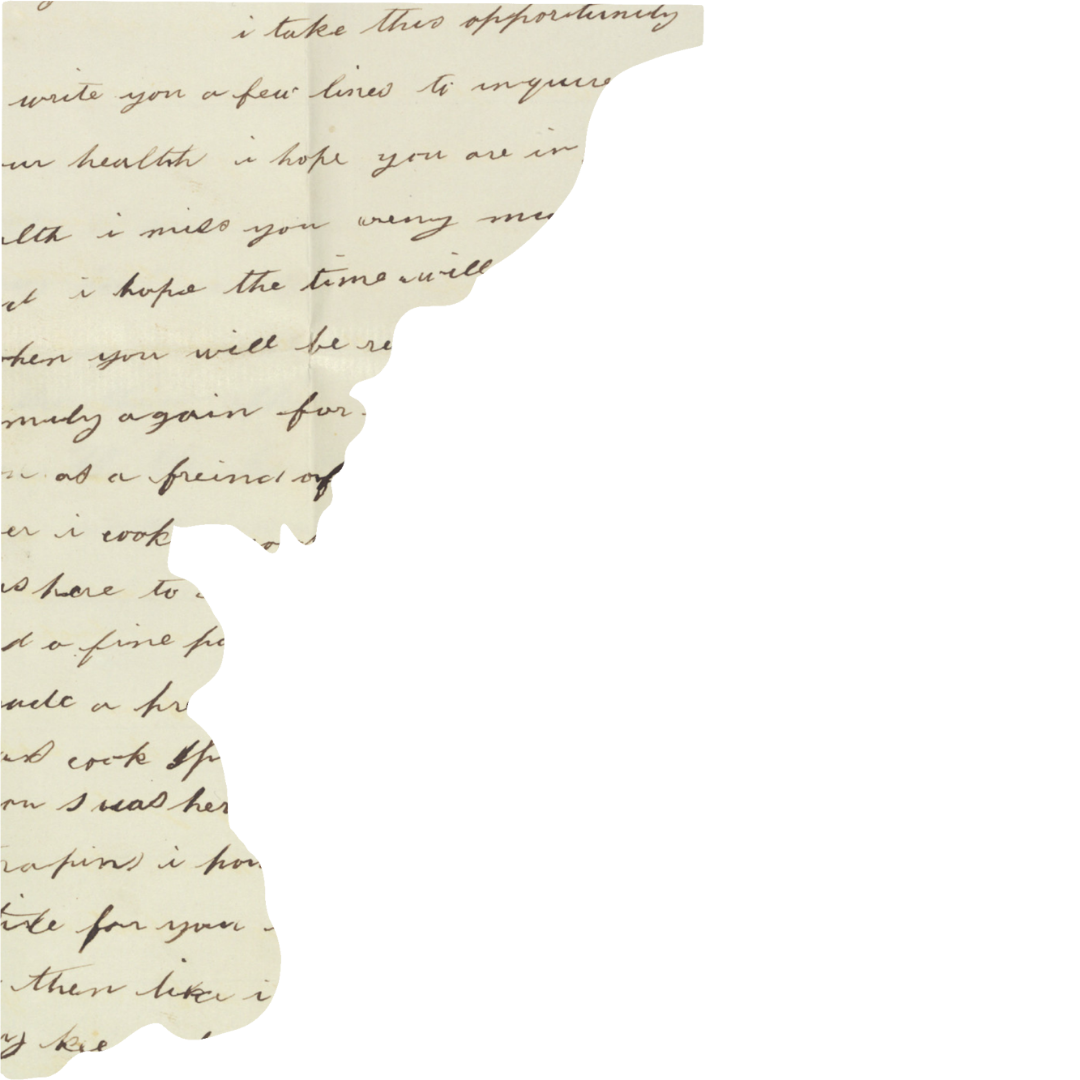 i take this opportunity
write you a few lines to inquire
ur health i hope you are in
alth i miss you weny mu
i hope the time will
when you will be re
mily again for
as a freind of
er i cook
as here to
d a fine po
ade a pr
as cook sp
ou s was her
rapins i pou
tite for your
then like i
ny kee